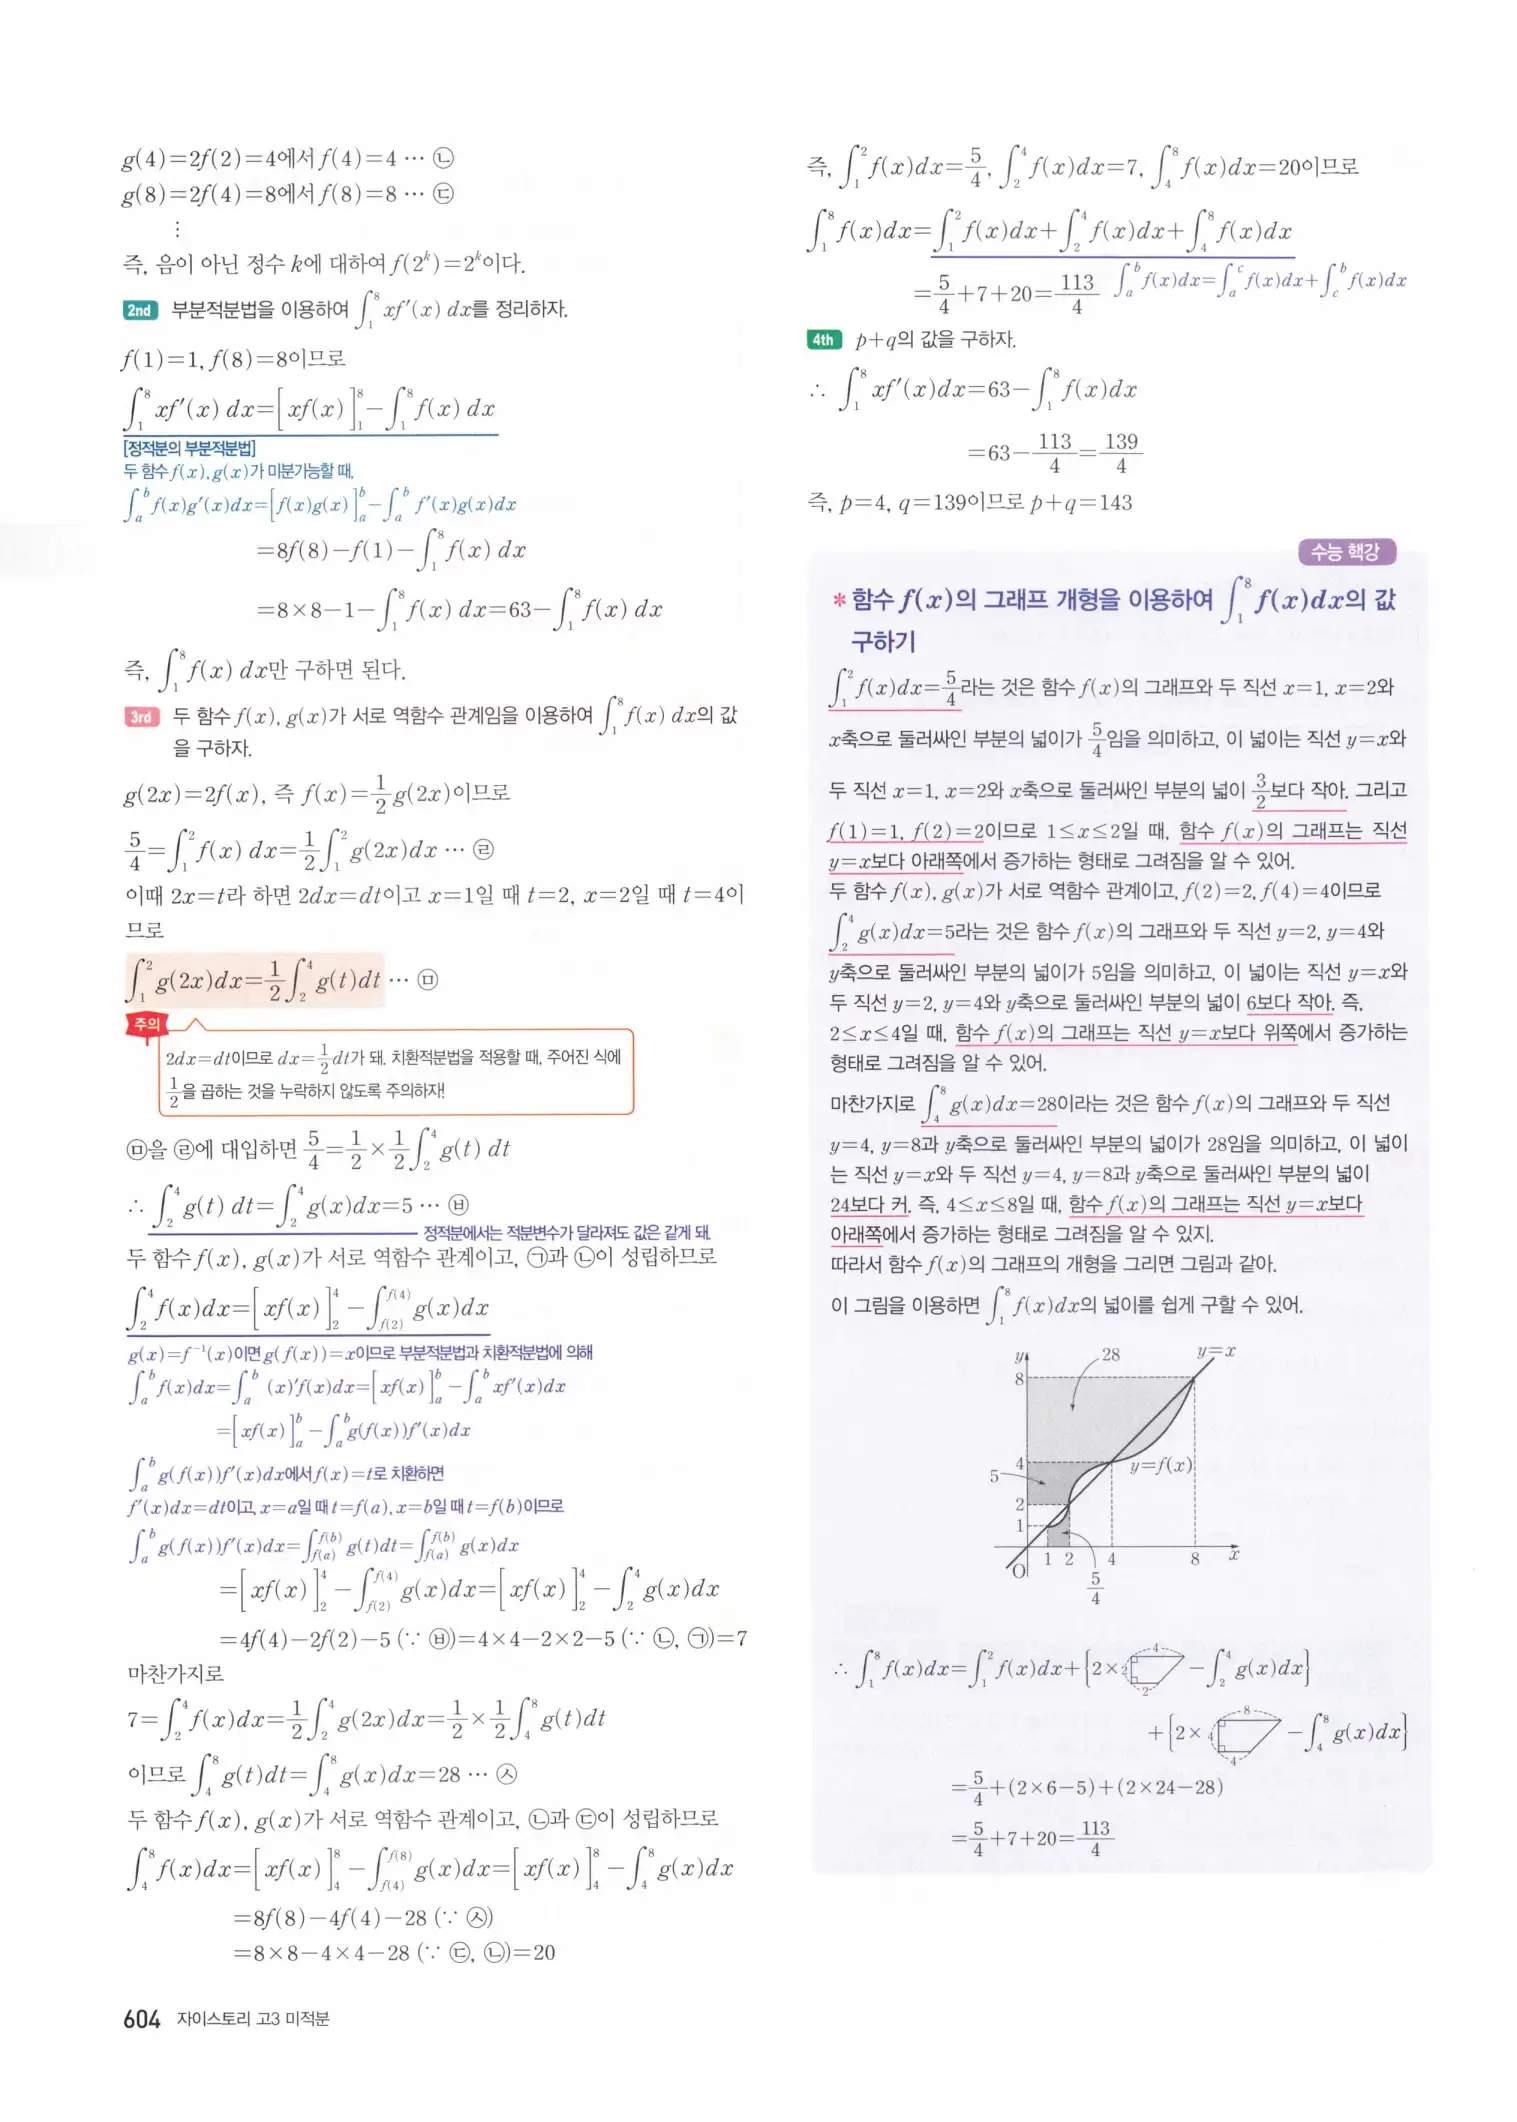 g(4)=2f(2)=4에서 f(4)=4 … ㉡
g(8)=2f(4)=8에서 f(8)=8 … ㉢
⋮
즉, 음이 아닌 정수 k에 대하여 f(2^k)=2^k이다.
2nd 부분적분법을 이용하여 ∫₁⁸ xf′(x) dx를 정리하자.
f(1)=1, f(8)=8이므로
∫₁⁸ xf′(x) dx=[xf(x)]₁⁸−∫₁⁸ f(x) dx
[정적분의 부분적분법]
두 함수 f(x), g(x)가 미분가능할 때,
∫ₐᵇ f(x)g′(x)dx=[f(x)g(x)]ₐᵇ−∫ₐᵇ f′(x)g(x)dx
=8f(8)−f(1)−∫₁⁸ f(x) dx
=8×8−1−∫₁⁸ f(x) dx=63−∫₁⁸ f(x) dx
즉, ∫₁⁸ f(x) dx만 구하면 된다.
3rd 두 함수 f(x), g(x)가 서로 역함수 관계임을 이용하여 ∫₁⁸ f(x) dx의 값
을 구하자.
g(2x)=2f(x), 즉 f(x)=1/2 g(2x)이므로
5/4=∫₁² f(x) dx=1/2∫₁² g(2x)dx … ㉣
이때 2x=t라 하면 2dx=dt이고 x=1일 때 t=2, x=2일 때 t=4이
므로
∫₁² g(2x)dx=1/2∫₂⁴ g(t)dt … ㉤
주의
2dx=dt이므로 dx=1/2 dt가 돼. 치환적분법을 적용할 때, 주어진 식에
1/2을 곱하는 것을 누락하지 않도록 주의하자!
㉤을 ㉣에 대입하면 5/4=1/2×1/2∫₂⁴ g(t) dt
∴ ∫₂⁴ g(t) dt=∫₂⁴ g(x)dx=5 … ㉥
정적분에서는 적분변수가 달라져도 값은 같게 돼.
두 함수 f(x), g(x)가 서로 역함수 관계이고, ㉠과 ㉡이 성립하므로
∫₂⁴ f(x)dx=[xf(x)]₂⁴−∫_{f(2)}^{f(4)} g(x)dx
g(x)=f⁻¹(x)이면 g(f(x))=x이므로 부분적분법과 치환적분법에 의해
∫ₐᵇ f(x)dx=∫ₐᵇ (x)′f(x)dx=[xf(x)]ₐᵇ−∫ₐᵇ xf′(x)dx
=[xf(x)]ₐᵇ−∫ₐᵇ g(f(x))f′(x)dx
∫ₐᵇ g(f(x))f′(x)dx에서 f(x)=t로 치환하면
f′(x)dx=dt이고, x=a일 때 t=f(a), x=b일 때 t=f(b)이므로
∫ₐᵇ g(f(x))f′(x)dx=∫_{f(a)}^{f(b)} g(t)dt=∫_{f(a)}^{f(b)} g(x)dx
=[xf(x)]₂⁴−∫_{f(2)}^{f(4)} g(x)dx=[xf(x)]₂⁴−∫₂⁴ g(x)dx
=4f(4)−2f(2)−5 (∵ ㉥)=4×4−2×2−5 (∵ ㉡, ㉠)=7
마찬가지로
7=∫₂⁴ f(x)dx=1/2∫₂⁴ g(2x)dx=1/2×1/2∫₄⁸ g(t)dt
이므로 ∫₄⁸ g(t)dt=∫₄⁸ g(x)dx=28 … ㉦
두 함수 f(x), g(x)가 서로 역함수 관계이고, ㉡과 ㉢이 성립하므로
∫₄⁸ f(x)dx=[xf(x)]₄⁸−∫_{f(4)}^{f(8)} g(x)dx=[xf(x)]₄⁸−∫₄⁸ g(x)dx
=8f(8)−4f(4)−28 (∵ ㉦)
=8×8−4×4−28 (∵ ㉢, ㉡)=20
604 자이스토리 고3 미적분
즉, ∫₁² f(x)dx=5/4, ∫₂⁴ f(x)dx=7, ∫₄⁸ f(x)dx=20이므로
∫₁⁸ f(x)dx=∫₁² f(x)dx+∫₂⁴ f(x)dx+∫₄⁸ f(x)dx
=5/4+7+20=113/4 ∫ₐᵇ f(x)dx=∫ₐᶜ f(x)dx+∫_c^b f(x)dx
4th p+q의 값을 구하자.
∴ ∫₁⁸ xf′(x)dx=63−∫₁⁸ f(x)dx
=63−113/4=139/4
즉, p=4, q=139이므로 p+q=143
수능 핵강
* 함수 f(x)의 그래프 개형을 이용하여 ∫₁⁸ f(x)dx의 값
구하기
∫₁² f(x)dx=5/4라는 것은 함수 f(x)의 그래프와 두 직선 x=1, x=2와
x축으로 둘러싸인 부분의 넓이가 5/4임을 의미하고, 이 넓이는 직선 y=x와
두 직선 x=1, x=2와 x축으로 둘러싸인 부분의 넓이 3/2보다 작아. 그리고
f(1)=1, f(2)=2이므로 1≤x≤2일 때, 함수 f(x)의 그래프는 직선
y=x보다 아래쪽에서 증가하는 형태로 그려짐을 알 수 있어.
두 함수 f(x), g(x)가 서로 역함수 관계이고, f(2)=2, f(4)=4이므로
∫₂⁴ g(x)dx=5라는 것은 함수 f(x)의 그래프와 두 직선 y=2, y=4와
y축으로 둘러싸인 부분의 넓이가 5임을 의미하고, 이 넓이는 직선 y=x와
두 직선 y=2, y=4와 y축으로 둘러싸인 부분의 넓이 6보다 작아. 즉,
2≤x≤4일 때, 함수 f(x)의 그래프는 직선 y=x보다 위쪽에서 증가하는
형태로 그려짐을 알 수 있어.
마찬가지로 ∫₄⁸ g(x)dx=28이라는 것은 함수 f(x)의 그래프와 두 직선
y=4, y=8과 y축으로 둘러싸인 부분의 넓이가 28임을 의미하고, 이 넓이
는 직선 y=x와 두 직선 y=4, y=8과 y축으로 둘러싸인 부분의 넓이
24보다 커. 즉, 4≤x≤8일 때, 함수 f(x)의 그래프는 직선 y=x보다
아래쪽에서 증가하는 형태로 그려짐을 알 수 있지.
따라서 함수 f(x)의 그래프의 개형을 그리면 그림과 같아.
이 그림을 이용하면 ∫₁⁸ f(x)dx의 넓이를 쉽게 구할 수 있어.
y 28 y=x
8
4 y=f(x)
5
2
1
O 1 2 4 8 x
5/4
∴ ∫₁⁸ f(x)dx=∫₁² f(x)dx+{2× 4 2 2 −∫₂⁴ g(x)dx}
+{2× 8 4 4 −∫₄⁸ g(x)dx}
=5/4+(2×6−5)+(2×24−28)
=5/4+7+20=113/4